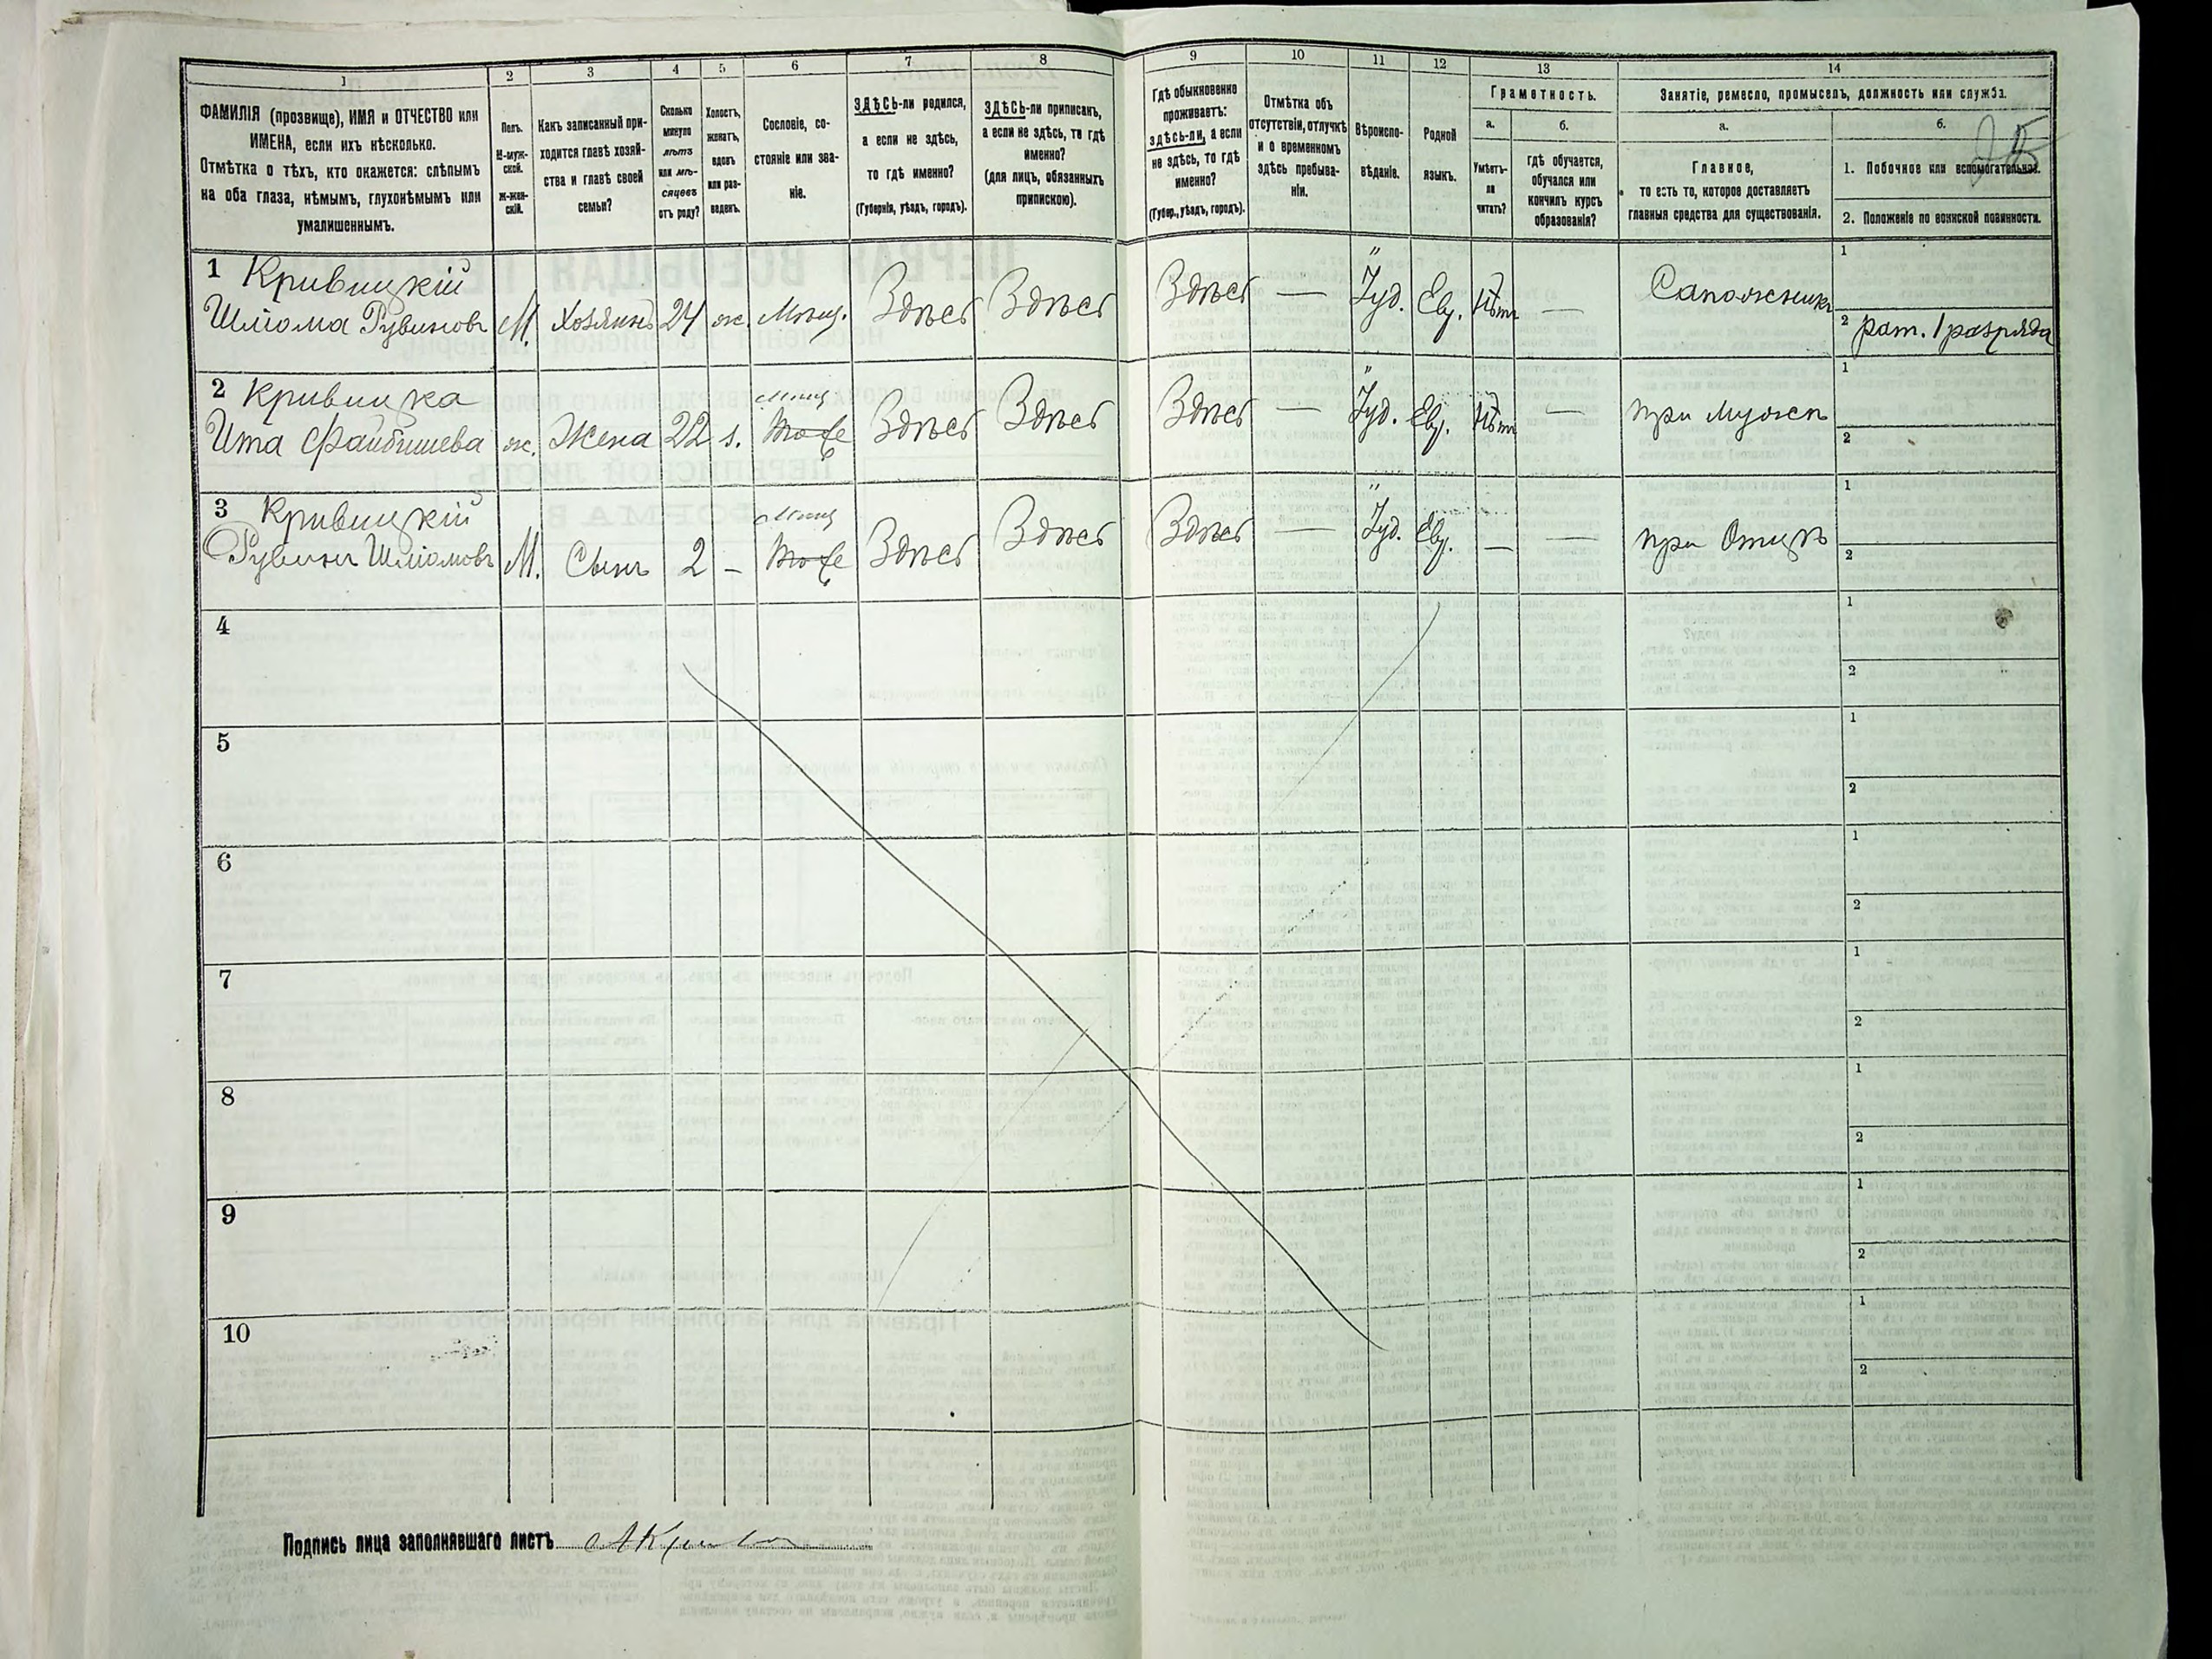 1 2 3 4 5 6 7 8 9 10 11 12 13 14
ФАМИЛІЯ (прозвище), ИМЯ и ОТЧЕСТВО или
ИМЕНА, если ихъ нѣсколько.
Отмѣтка о тѣхъ, кто окажется: слѣпымъ
на оба глаза, нѣмымъ, глухонѣмымъ или
умалишеннымъ.
Полъ.
М-муж-
ской.
Ж-жен-
скій.
Какъ записанный при-
ходится главѣ хозяй-
ства и главѣ своей
семьи?
Сколько
минуло
лѣтъ
или мѣ-
сяцевъ
отъ роду?
Холостъ,
женатъ,
вдовъ
или раз-
веденъ.
Сословіе, со-
стояніе или зва-
ніе.
ЗДѢСЬ-ли родился,
а если не здѣсь,
то гдѣ именно?
(Губернія, уѣздъ, городъ).
ЗДѢСЬ-ли приписанъ,
а если не здѣсь, то гдѣ
именно?
(для лицъ, обязанныхъ
припискою).
Гдѣ обыкновенно
проживаетъ:
здѣсь-ли, а если
не здѣсь, то гдѣ
именно?
(Губер., уѣздъ, городъ).
Отмѣтка объ
отсутствіи, отлучкѣ
и о временномъ
здѣсь пребыва-
ніи.
Вѣроиспо-
вѣданіе.
Родной
языкъ.
Грамотность.
а.
Умѣетъ-
ли
читать?
б.
гдѣ обучается,
обучался или
кончилъ курсъ
образованія?
Занятіе, ремесло, промыселъ, должность или служба.
а.
Главное,
то есть то, которое доставляетъ
главныя средства для существованія.
б.
1. Побочное или вспомогательное.
2. Положеніе по воинской повинности.
1 Кривицкій
Шліома Рувиновъ М. Хозяинъ 24 ж. Мѣщ. Здѣсь Здѣсь Здѣсь — Іуд. Евр. Нѣтъ — Сапожникъ
1
2 рат. 1 разряда
2 Кривицка
Ита Файбишева ж. Жена 22 з. Мѣщ Тоже Здѣсь Здѣсь Здѣсь — Іуд. Евр. Нѣтъ — при мужѣ
1
2
3 Кривицкій
Рувинъ Шліомовъ М. Сынъ 2 – Мѣщ Тоже Здѣсь Здѣсь Здѣсь — Іуд. Евр. — — при Отцѣ
1
2
4
1
2
5
1
2
6
1
2
7
1
2
8
1
2
9
1
2
10
1
2
Подпись лица заполнявшаго листъ